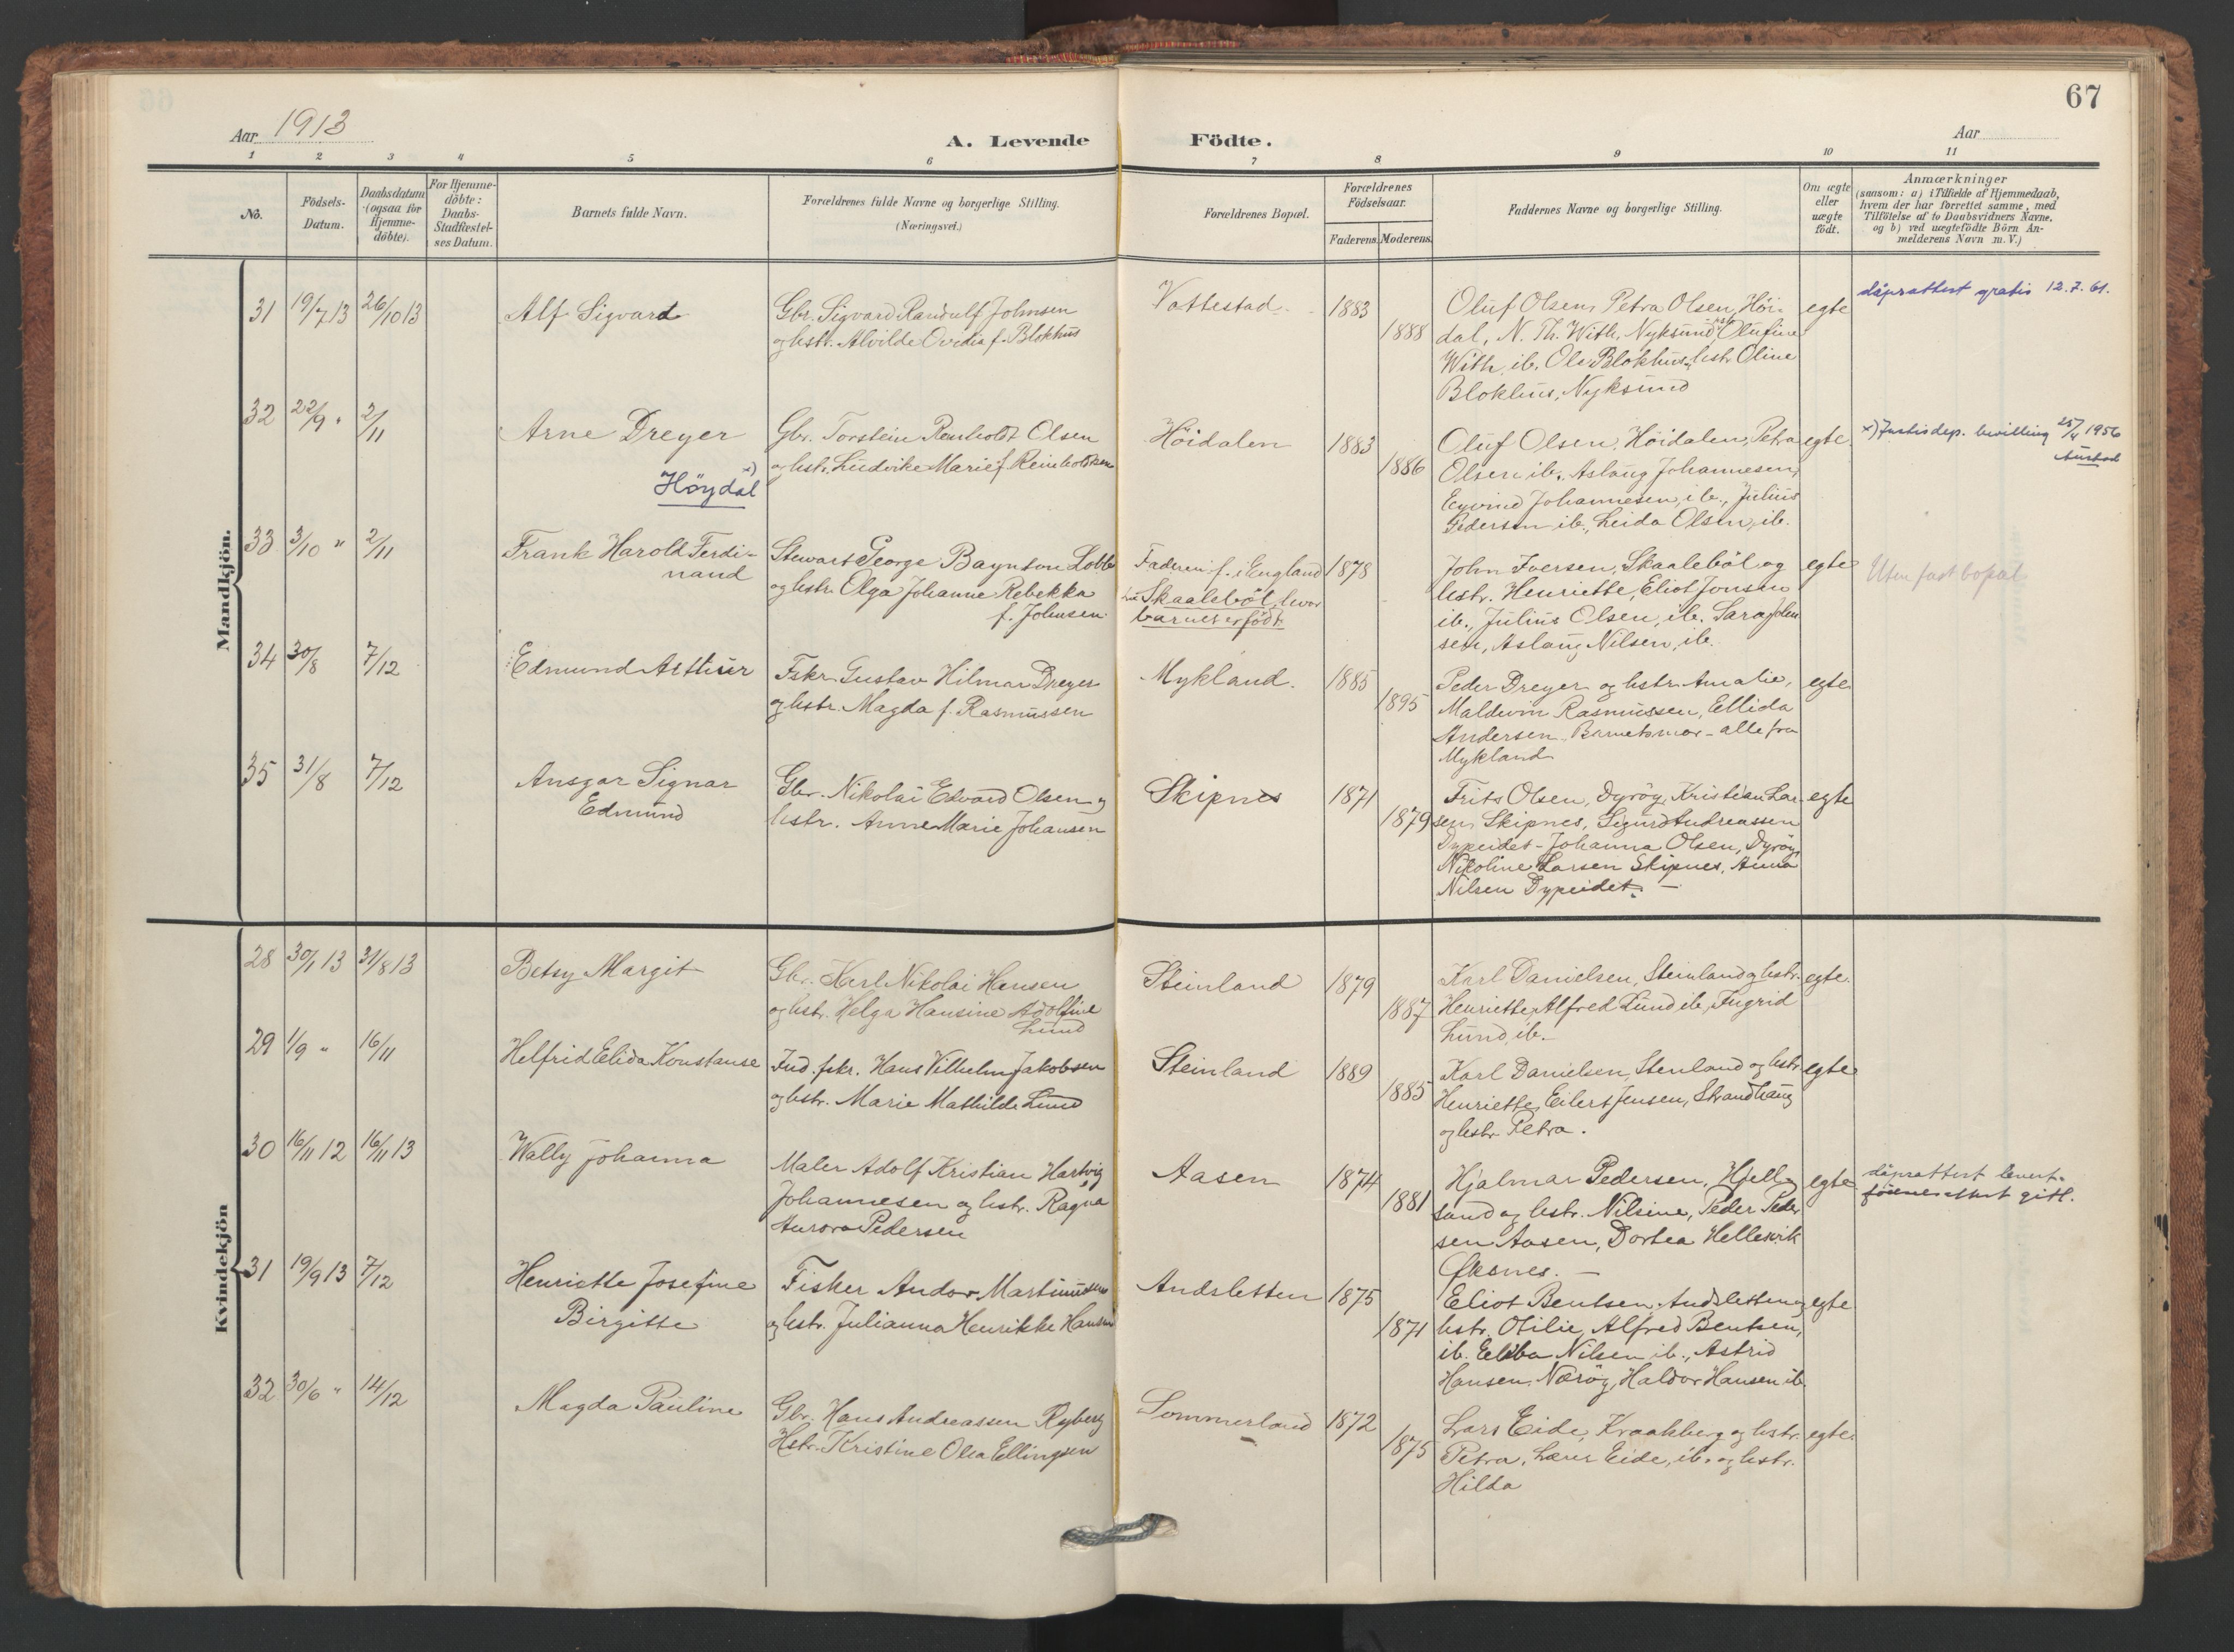 67
Aar 1913
A. Levende Födte.
Aar
1 2 3 4 5 6 7 8 9 10 11
No.
Födsels-Datum.
Daabsdatum (ogsaa for Hjemme-döbte).
For Hjemme-döbte: Daabs-Stadfæstel-ses Datum.
Barnets fulde Navn.
Forældrenes fulde Navne og borgerlige Stilling.
(Næringsvei.)
Forældrenes Bopæl.
Forældrenes Födselsaar.
Faderens. Moderens.
Faddernes Navne og borgerlige Stilling.
Om ægte eller uægte födt.
Anmærkninger
(saasom: a) i Tilfælde af Hjemmedaab,
hvem der har forrettet samme, med
Tilföielse af to Daabsvidners Navne,
og b) ved uægtefödte Börn An-
melderens Navn m. V.)
Mandkjön.
31 19/7 13 26/10 13 Alf Sigvard
Gbr. Sigvard Randulf Johnsen
og hstr. Alvilde Ovedia f. Blokhus
Vattestad. 1883
1888
Oluf Olsen, Petra Olsen, Höi-
dal, N. Th. With, Nyksund, Olufine
With, ib. Ole Blokhus, hstr Oline
Blokhus, Nyksund
egte
dåpsattest gratis 12.7.61.
32 22/9 " 2/11 Arne Dreyer
Höydal x)
Gbr. Torstein Reinholdt Olsen
og hstr. Ludvike Marie f. Reinholdtsen
Höidalen 1883
1886
Oluf Olsen, Höidalen, Petra
Olsen ib., Aslaug Johannesen,
Eyvind Johannesen, ib., Julius
Pedersen ib., Leida Olsen, ib.
egte
x) Justisdep. bevilling 25/4 1956
33 3/10 " 2/11 Frank Harold Ferdi-
nand
Stewart George Baynton Lobb
og hstr. Olga Johanne Rebekka
f. Johnsen
Faderen f. i England
Skaaleböl, hvor
barnet er födt
1878
John Iversen, Skaaleböl og
hstr. Henriette, Eliot Jonsen
ib., Julius Olsen, ib. Sara John
sen, Aslaug Nilsen, ib.
egte
Uten fast bopæl
34 30/8 7/12 Edmund Arthur
Fskr. Gustav Hilmar Dreyer
og hstr. Magda f. Rasmussen
Mykland. 1885
1895
Peder Dreyer og hstr. Amalie,
Maldwin Rasmussen, Ellida
Andersen, Barnets mor - alle fra
Mykland
egte
35 31/8 7/12 Ansgar Signar
Edmund
Gbr. Nikolai Edvard Olsen og
hstr. Anne Marie Johansen
Skipnes 1871
1879
Frits Olsen, Dyröy, Kristian Lar-
sen, Skipnes, Sigurd Andreassen
Dypeidet - Johanna Olsen, Dyröy,
Nikoline Larsen Skipnes, Anna
Nilsen Dypeidet. -
egte
Kvindekjön
28 30/1 13 31/8 13 Betsy Margit
Gbr. Karl Nikolai Hansen
og hstr. Helga Hansine Adolfine
Lund
Steinland 1879
1887
Karl Danielsen, Steinland og hstr.
Henriette, Alfred Lund ib, Ingrid
Lund, ib. -
egte.
29 1/9 " 16/11 Helfrid Elida Konstanse
Ind. fskr. Hans Vilhelm Jakobsen
og hstr. Marie Mathilde Lund
Steinland 1889
1885
Karl Danielsen, Stenland og hstr
Henriette, Eilert Jensen, Strandhaug
og hstr Petra.
egte
30 16/11 12 16/11 13 Wally Johanna
Maler Adolf Kristian Hartvig
Johannesen og hstr. Ragna
Aurora Pedersen
Aasen 1874
1881
Hjalmar Pedersen, Hjell-
sand og hstr. Nilsine, Peder Peder
sen Aasen, Dortea Hellesvik
Øksnes. -
egte
dåpsattest levert.
31 19/9 13 7/12 Henriette Josefine
Birgitte
Fisker Andor Martinussen
og hstr. Julianna Henrikke Hansen
Andsletten 1875
1871
Eliot Bentsen, Andsletten og
hstr. Otilie, Alfred Bentsen,
ib. Ebba Nilsen ib., Astrid
Hansen, Næröy, Haldor Hansen ib.
egte
32 30/6 " 14/12 Magda Pauline
Gbr. Hans Andreassen Ryberg
Hstr. Kristine Olea Ellingsen
Sommerland 1872
1875
Lars Eide, Kraakberg og hstr.
Petra, Lærer Eide, ib. og hstr.
Hilda
egte.